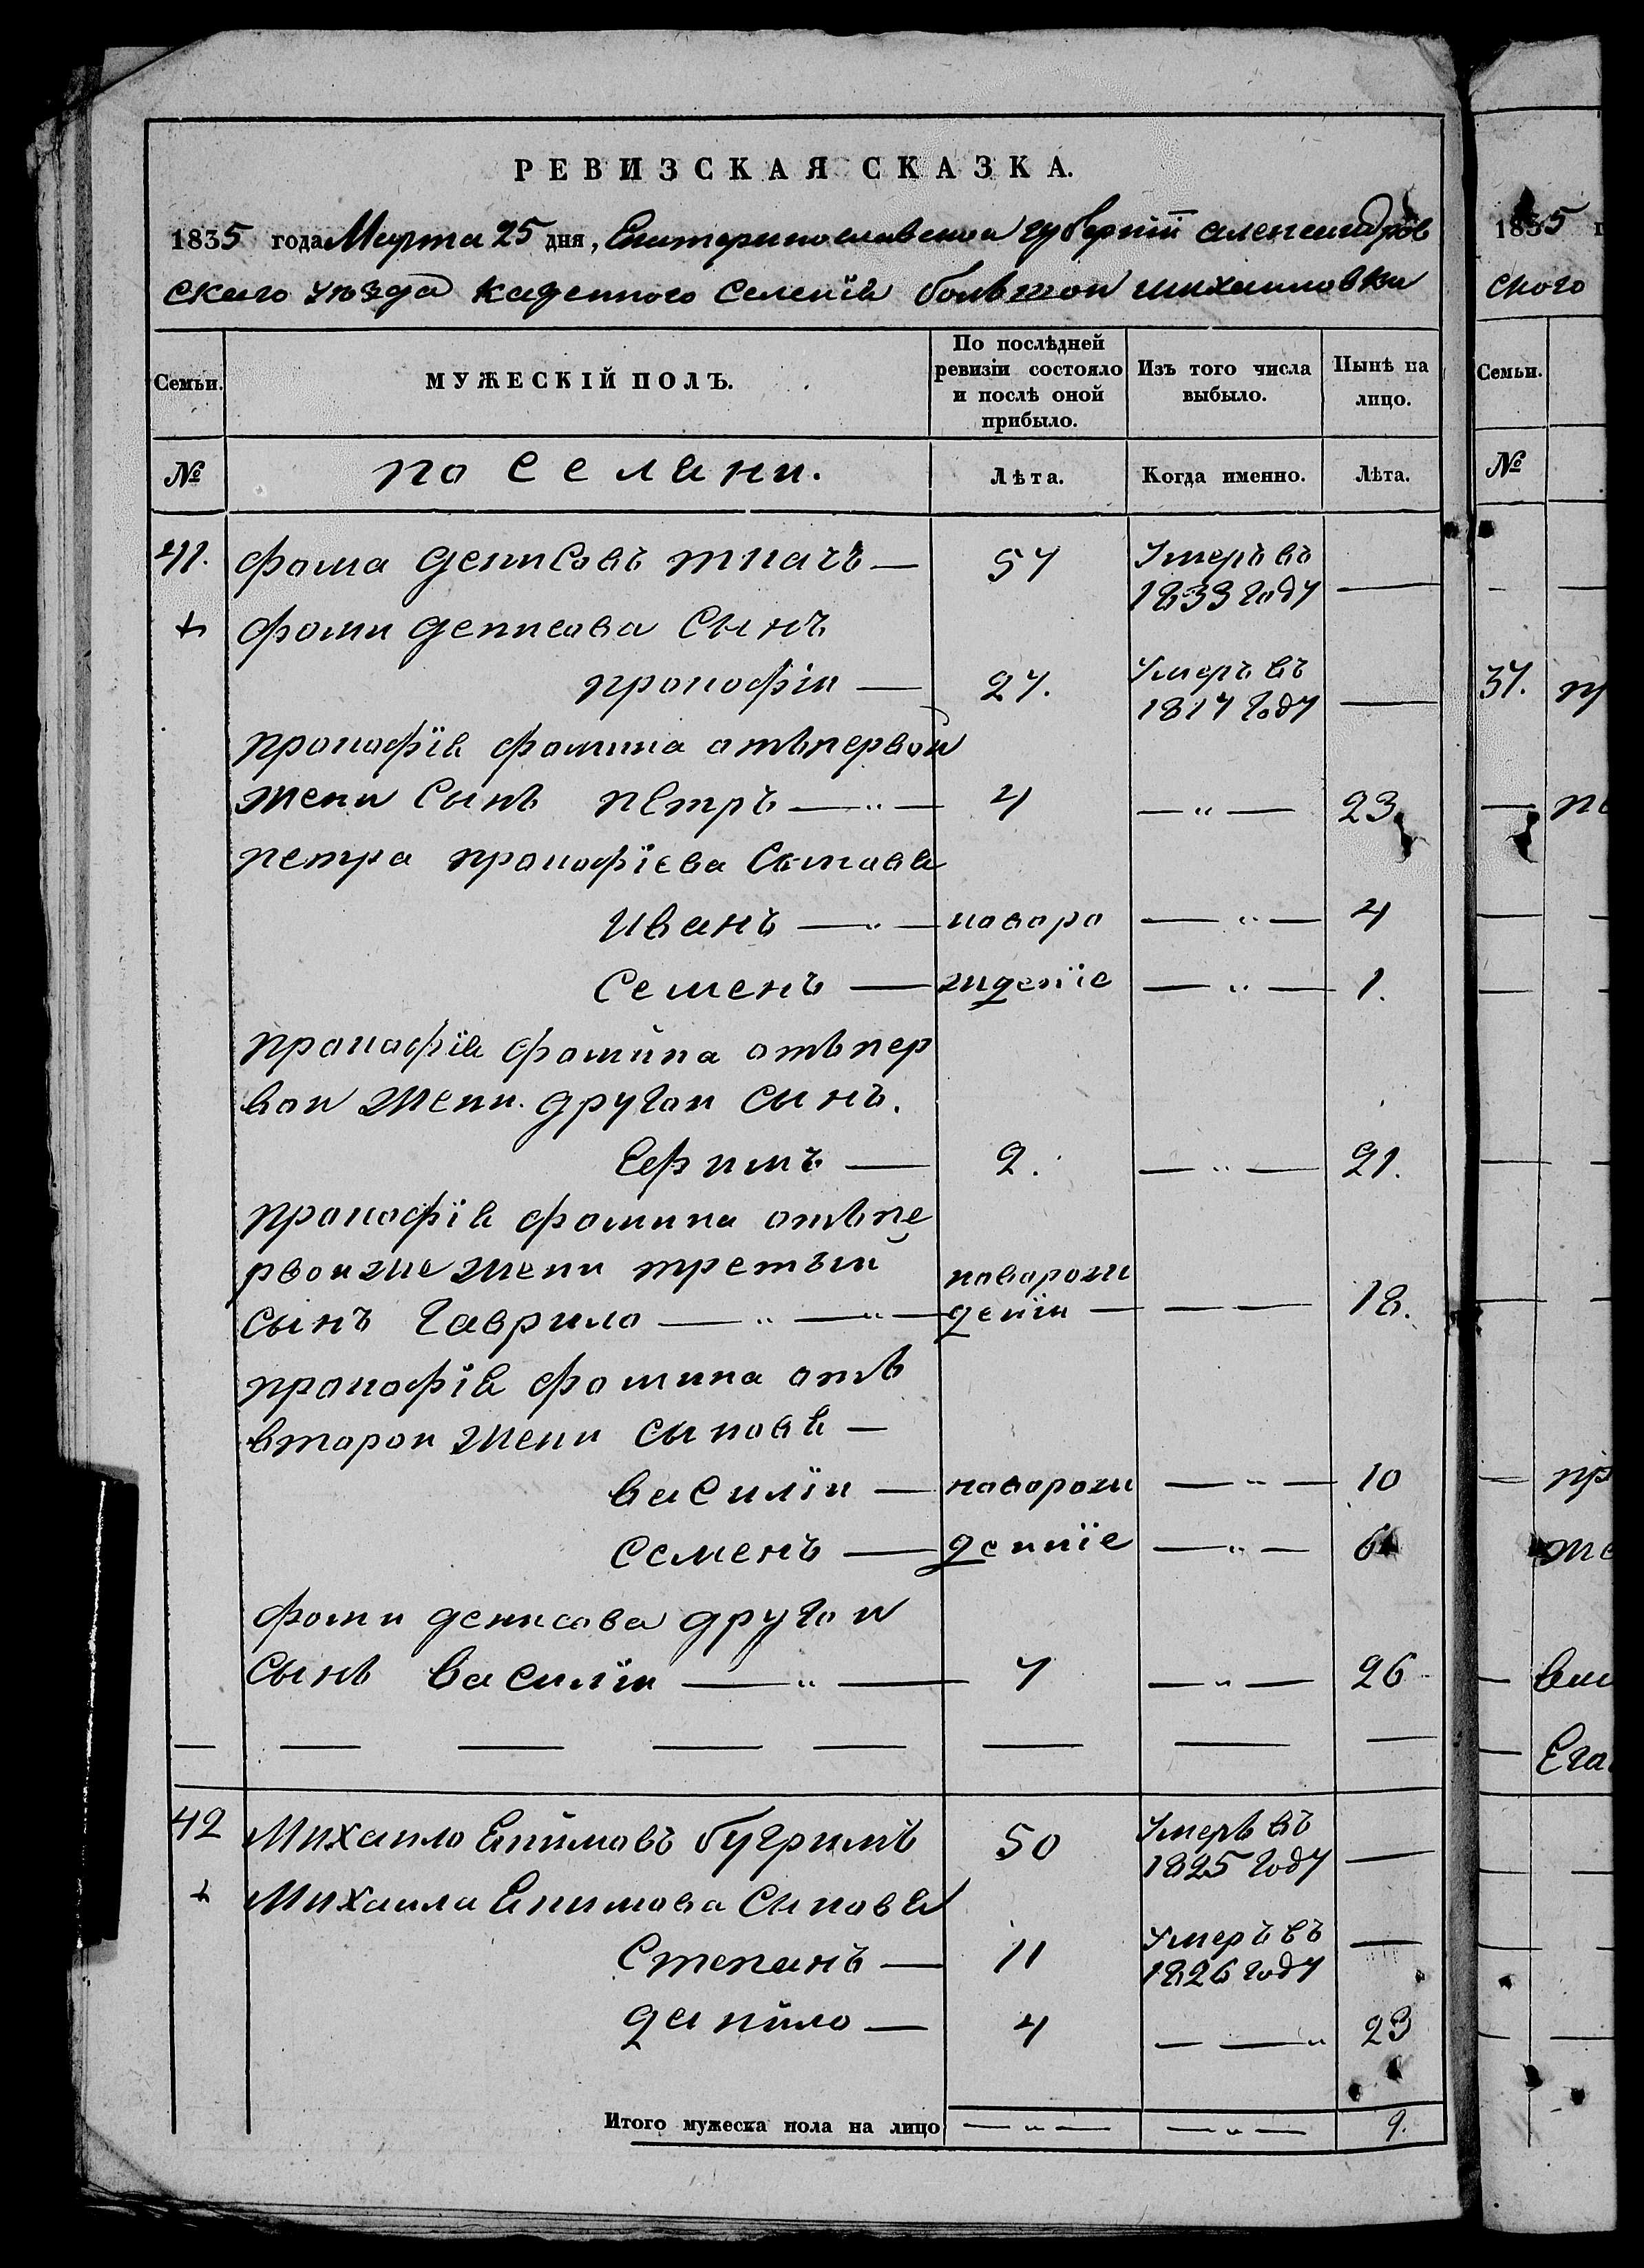 РЕВИЗСКАЯ СКАЗКА.
1835 года Марта 25 дня, Екатеринославской губерніи александров
скаго уѣзда казенного селенія большой михаиловки
Семьи.
МУЖЕСКІЙ ПОЛЪ.
По послѣдней ревизіи состояло и послѣ оной прибыло.
Изъ того числа выбыло.
Нынѣ на лицо.
№
поселяни.
Лѣта.
Когда именно.
Лѣта.
41. фома денисовъ ткачъ — 57 Умеръ въ 1833 году —
фоми денисова сынъ
прокофіи — 27. Умеръ въ 1817 году —
прокофія фомина отъ первой
жени сынъ петръ — „ — 4 — „ — 23.
петра прокофіева сыновя
иванъ — „ — новоро — „ — 4
семенъ — ждение — „ — 1.
прокофія фомина отъ пер
вои жени другои сынъ.
Ефимъ — 2. — „ — 21.
прокофія фомина отъ пе
рвои же жени третьии
новорож
сынъ гаврило — „ — „ — дении — — — 18.
прокофія фомина отъ
второи жени сыновя —
василіи — неворож — „ — 10
семенъ — деннїе — „ — 6
фоми денисова другои
сынъ василіи — „ — 7 — „ — 26
— — — — — — — —
42 Михаило Екимовъ бугримъ 50 Умеръ въ 1825 году —
Михаила Екимова сыновя
степанъ — 11 Умеръ въ 1826 году —
данило — 4 — — „ 23
Итого мужеска пола на лицо — „ — — „ — 9.
1835 г
ского
Семьи.
№
37. пр
— пе
— пр
же
— Ега